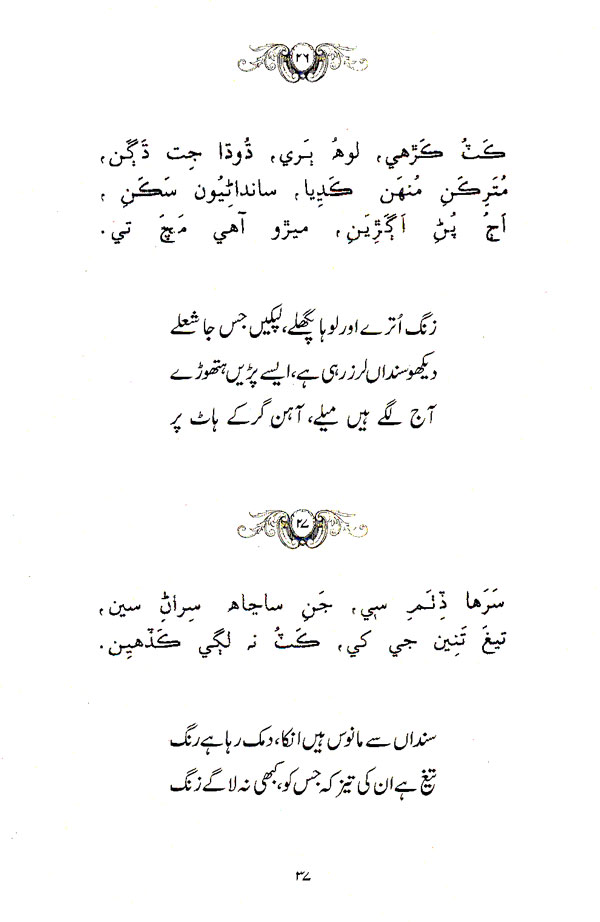 ۲۶
ڪَٽُ ڪَڙهي، لوھُ ٻَري، ڌُوڌا جِت ڌَڳَن،
مُتَرِڪَنِ مُنهَن ڪَڍِيا، سانداڻِيُون سَڪَنِ ،
اَڄُ پُڻِ اَڳَڙِيَنِ، ميڙو آهي مَچَ تي.
زنگ اُترے اور لوہا پگھلے، لپکیں جس جا شعلے
دیکھو سنداں لرز رہی ہے، ایسے پڑیں ہتھوڑے
آج لگے ہیں میلے، آہن گر کے ہاٹ پر
۲۷
سَرَها ڏِٺَمِ سي، جَنِ ساڃاھ سِراڻِ سين،
تيغَ تَنِين جي کي، ڪَٽُ نہ لڳي ڪَڏَهِين.
سنداں سے مانوس ہیں انکا، دمک رہا ہے رنگ
تیغ ہے ان کی تیز کہ جس کو، کبھی نہ لاگے زنگ
۳۷